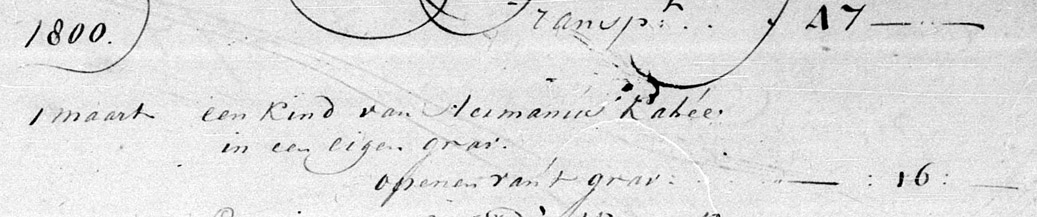 1800. Transpt. . . 47 —
1 maart een Kind van Hermanus Kahée
in een eigen graf.
openen van't graf: — : 16 : —